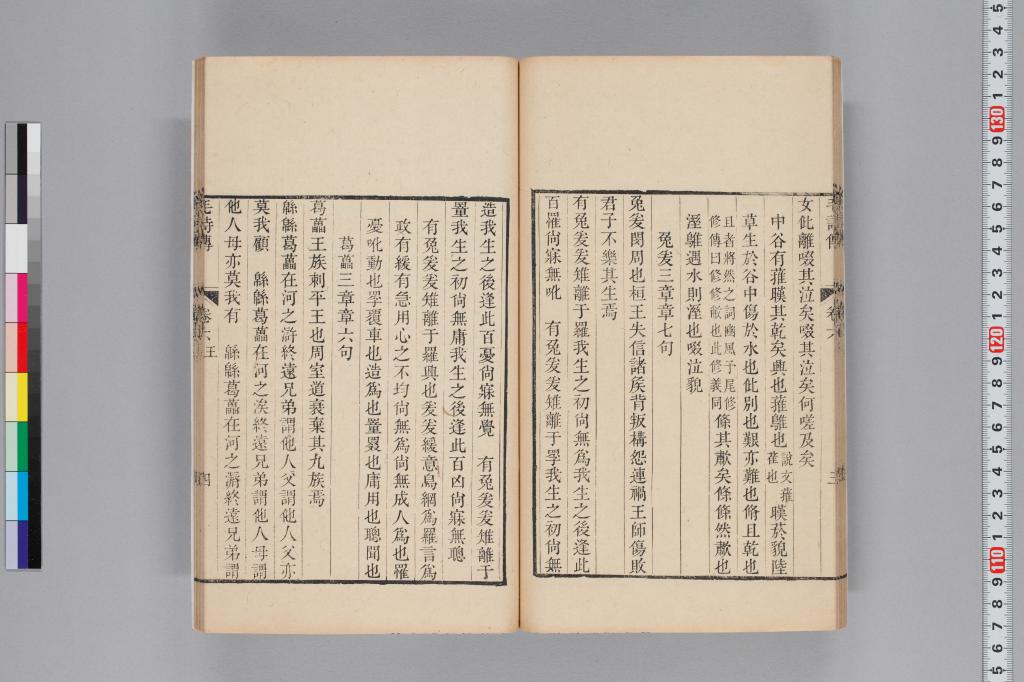 女仳離啜其泣矣啜其泣矣何嗟及矣
中谷有蓷暵其乾矣興也蓷鵻也說文蓷萑也暵菸貌陸
草生於谷中傷於水也仳別也艱亦難也脩且乾也
且者將然之詞豳風予尾修修傳曰修修敝也此修義同條其歗矣條條然歗也
溼鵻遇水則溼也啜泣貌
兔爰三章章七句
兔爰閔周也桓王失信諸矦背叛構怨連禍王師傷敗
君子不樂其生焉
有兔爰爰雉離于羅我生之初尙無爲我生之後逢此
百罹尙寐無吪　有兔爰爰雉離于罦我生之初尙無
造我生之後逢此百憂尙寐無覺　有兔爰爰雉離于
罿我生之初尙無庸我生之後逢此百凶尙寐無聰
有兔爰爰雉離于羅興也爰爰緩意鳥網爲羅言爲
政有緩有急用心之不均尙無爲尙無成人爲也罹
憂吪動也罦覆車也造爲也罿罬也庸用也聰聞也
葛藟三章章六句
葛藟王族刺平王也周室道衰棄其九族焉
緜緜葛藟在河之滸終遠兄弟謂他人父謂他人父亦
莫我顧　緜緜葛藟在河之涘終遠兄弟謂他人母謂
他人母亦莫我有　緜緜葛藟在河之漘終遠兄弟謂
毛詩傳
卷六　王
四